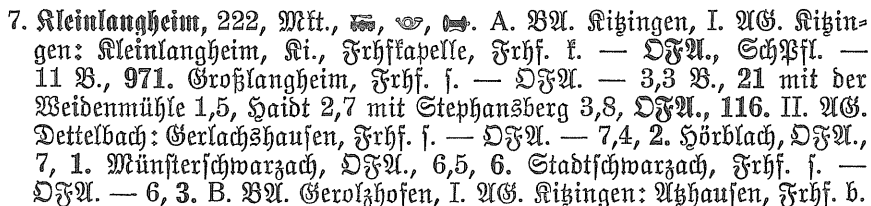 7. Kleinlangheim, 222, Mkt., 🚂, 📯, ☎. A. BA. Kitzingen, I. AG. Kitzin-
gen: Kleinlangheim, Ki., Frhfkapelle, Frhf. k. — OFA., SchPfl. —
11 B., 971. Großlangheim, Frhf. s. — OFA. — 3,3 B., 21 mit der
Weidenmühle 1,5, Haidt 2,7 mit Stephansberg 3,8, OFA., 116. II. AG.
Dettelbach: Gerlachshausen, Frhf. s. — OFA. — 7,4, 2. Hörblach, OFA.,
7, 1. Münsterschwarzach, OFA., 6,5, 6. Stadtschwarzach, Frhf. s. —
OFA. — 6, 3. B. BA. Gerolzhofen, I. AG. Kitzingen: Atzhausen, Frhf. b.